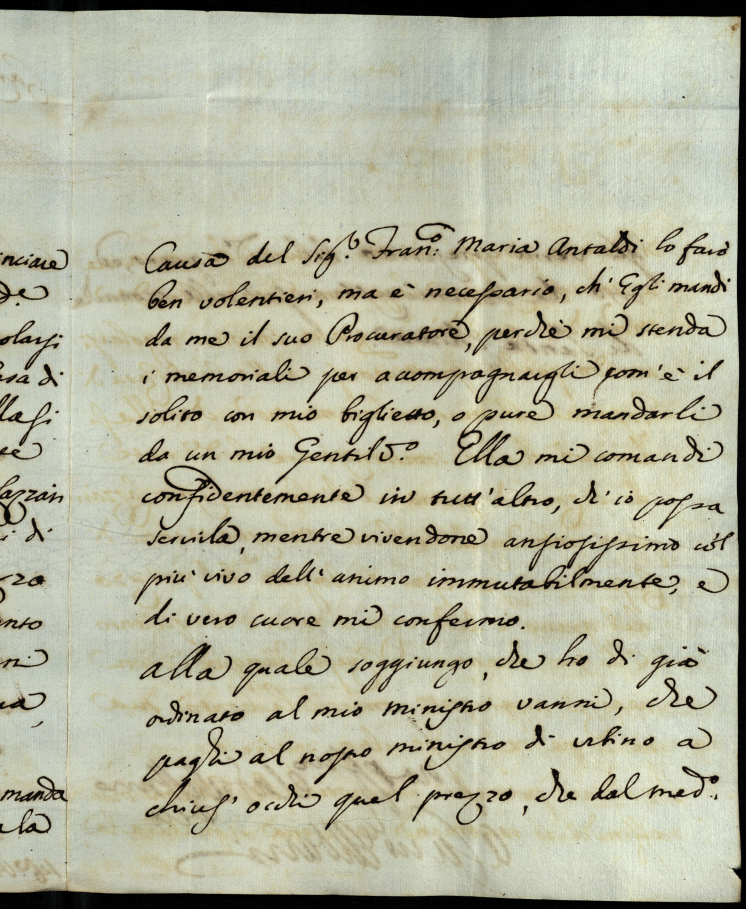 inciare
de
olarsi
sa di
llasi
te
lazzari
i di
zzo
nto
ni
ua,
manda
ala
Causa del Sig.r Fran.co Maria Antaldi lo farò
ben volentieri, ma è necessario, ch' Egli mandi
da me il suo Procuratore, perchè mi stenda
i memoriali per accompagnargli com' è il
solito con mio biglietto, o pure mandarli
da un mio Gentil'o. Ella mi comandi
confidentemente in tutt' altro, ch' io possa
servila, mentre vivendone ansiosissimo col
più vivo dell' animo immutabilmente, e
di vero cuore mi confermo.
alla quale soggiungo, che ho di già
ordinato al mio ministro vanni, che
paghi al nostro ministro di urbino a
chius' occhi quel prezzo, che dal med.o